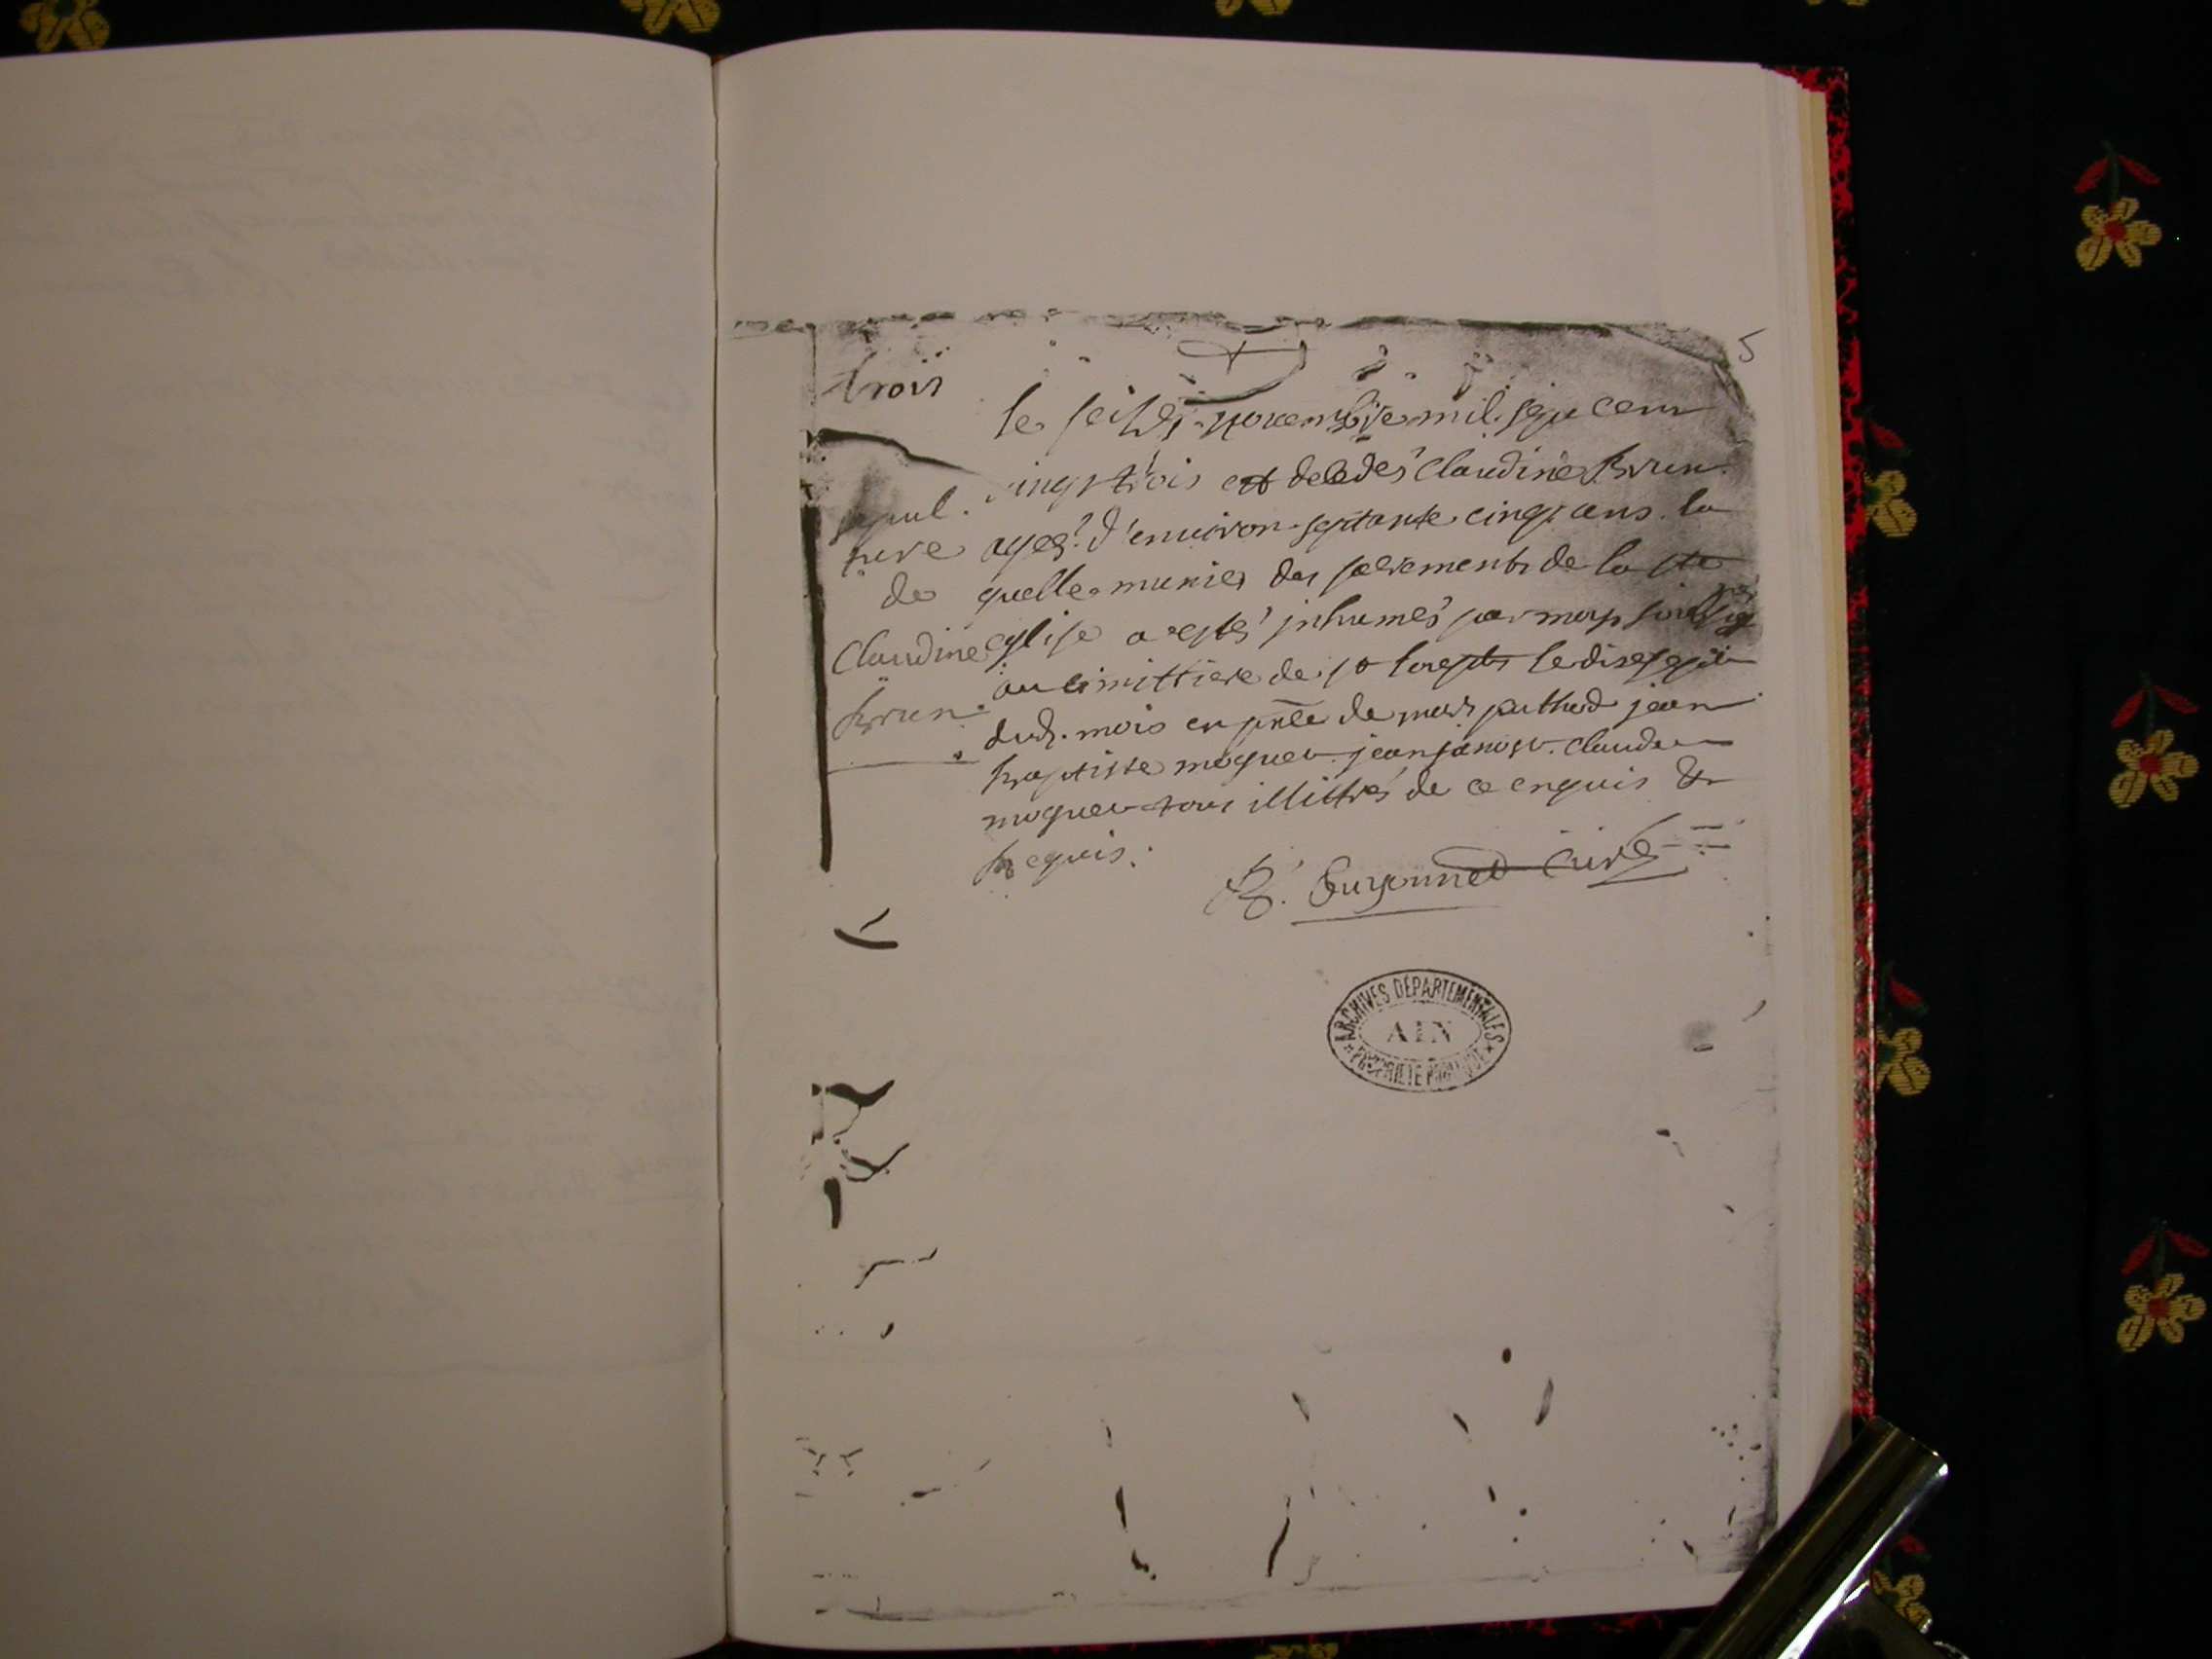 5
trois
le seize novembre mil sept cent
vingt trois est decedes Claudine Brun
agee d'environ septante cinq ans la
quelle munies des sacrements de la ste
eglise a estes inhumes par moy soubsig
au cimittiere de st le disesept
dud. mois en pñce de jean
baptiste moquet jean claude
moquet tous illittres de ce enquis &
requis.
sepul.
ture
de
Claudine
brun
curé
ARCHIVES DÉPARTEMENTALES
AIN
PROPRIÉTÉ PUBLIQUE